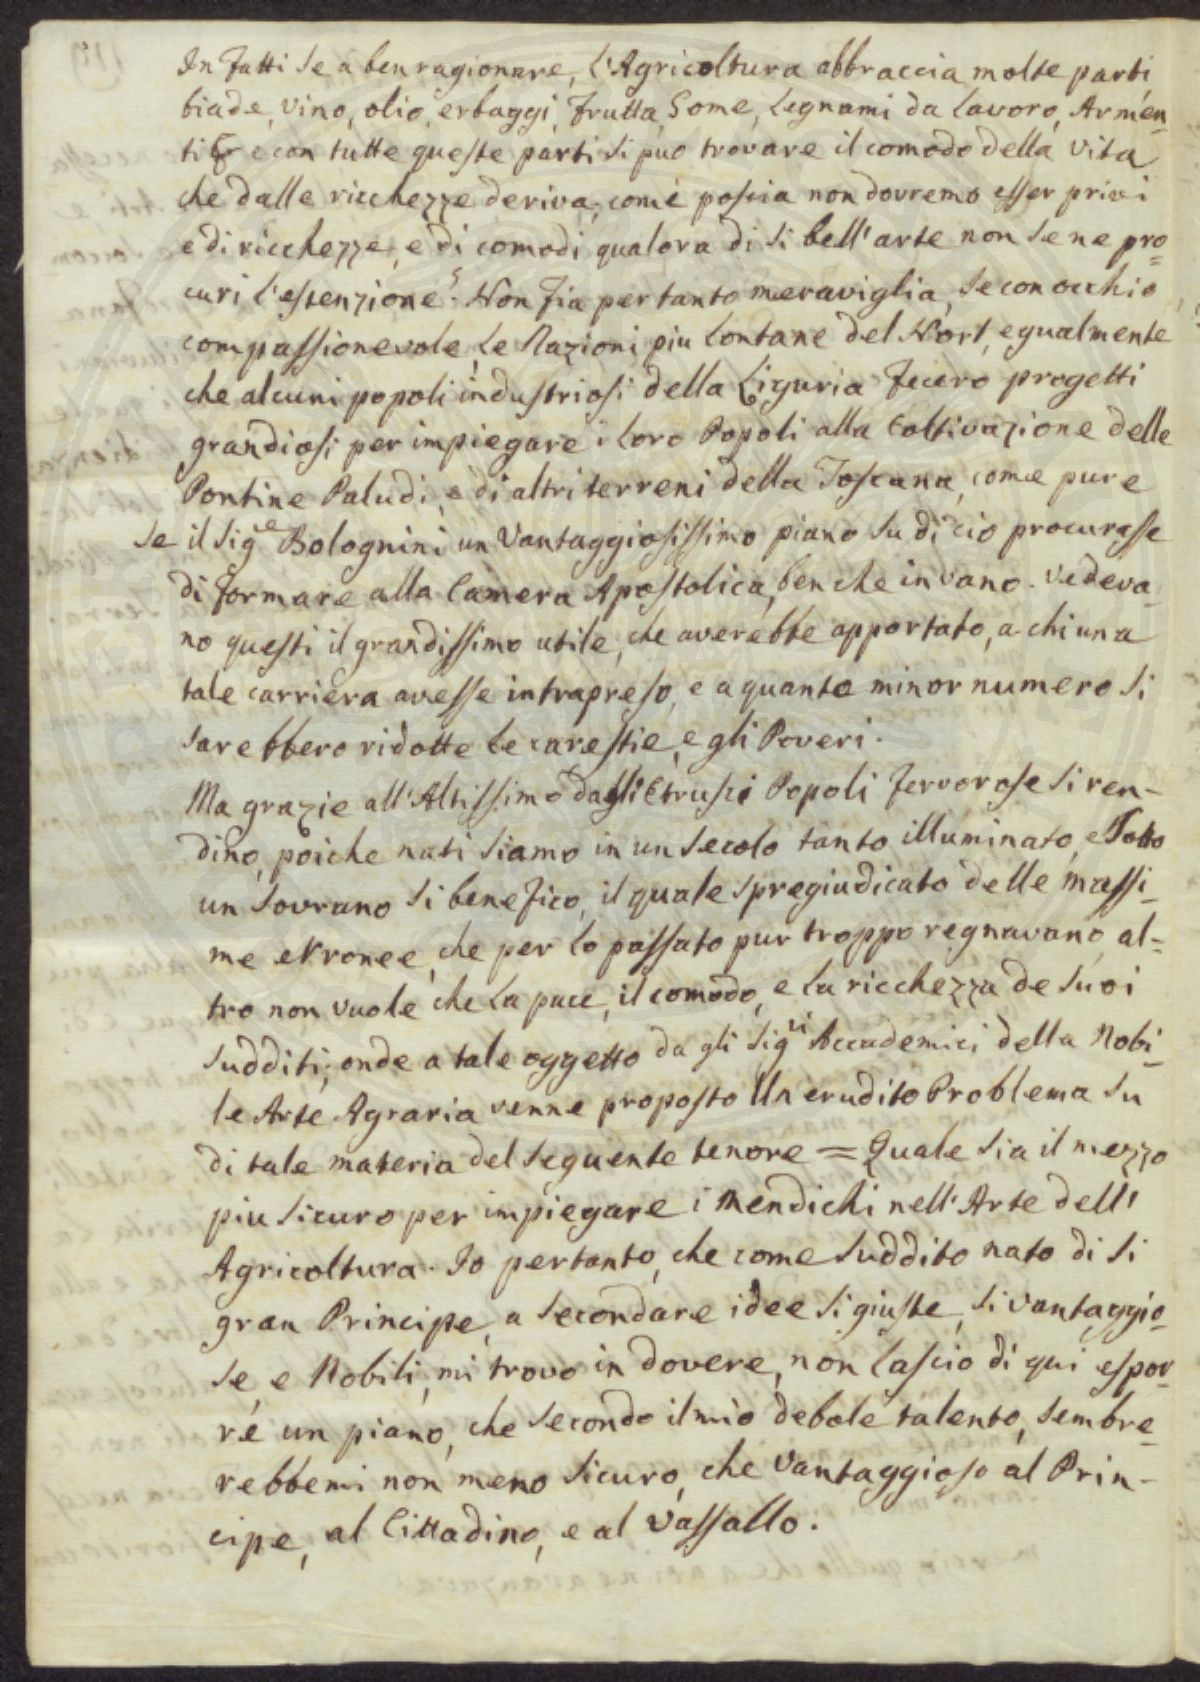 In fatti se a ben ragionare, l'Agricoltura abbraccia molte parti,
biade, vino, olio, erbaggi, frutta, Some, legnami da lavoro, Armen-
ti e con tutte queste parti si può trovare il comodo della vita
che dalle ricchezze deriva; come poscia non dovremo esser privi
e di ricchezze, e di comodi, qualora di si bell'arte non se ne pro=
curi l'estenzione? Non fia per tanto meraviglia, se con occhio
compassionevole, le Nazioni piu lontane del Nort, egualmente
che alcuni popoli industriosi della Liguria fecero progetti
grandiosi per impiegare i loro Popoli alla Coltivazione delle
Pontine Paludi, e di altri terreni della Toscana, come pure
se il Sig.e Bolognini un Vantaggiosissimo piano su di cio procurasse
di formare alla Camera Apostolica, ben che in vano. Vedeva-
no questi il grandissimo utile, che averebbe apportato, a chi una
tale carriera avesse intrapreso, e a quanto minor numero si
sarebbero ridotte le carestie, e gli Poveri.
Ma grazie all'Altissimo dagli Etrusci Popoli fervorose si ren-
dino, poiche nati siamo in un secolo tanto illuminato, e sotto
un sovrano si benefico, il quale spregiudicato delle massi-
me erronee, che per lo passato pur troppo regnavano, al=
tro non vuole, che la pace, il comodo, e la ricchezza de suoi
sudditi; onde a tale oggetto da gli Sig.ri Accademici della Nobi-
le Arte Agraria venne proposto Un erudito Problema su
di tale materia del seguente tenore = Quale sia il mezzo
piu sicuro per impiegare i Mendichi nell'Arte dell'
Agricoltura. Io pertanto, che come suddito nato di si
gran Principe, a secondare idee si giuste, si vantaggio-
se, e Nobili, mi trovo in dovere, non lascio di qui espor-
re un piano, che secondo il mio debole talento, sembre-
rebbemi non meno sicuro, che Vantaggioso al Prin-
cipe, al Cittadino, e al Vassallo.